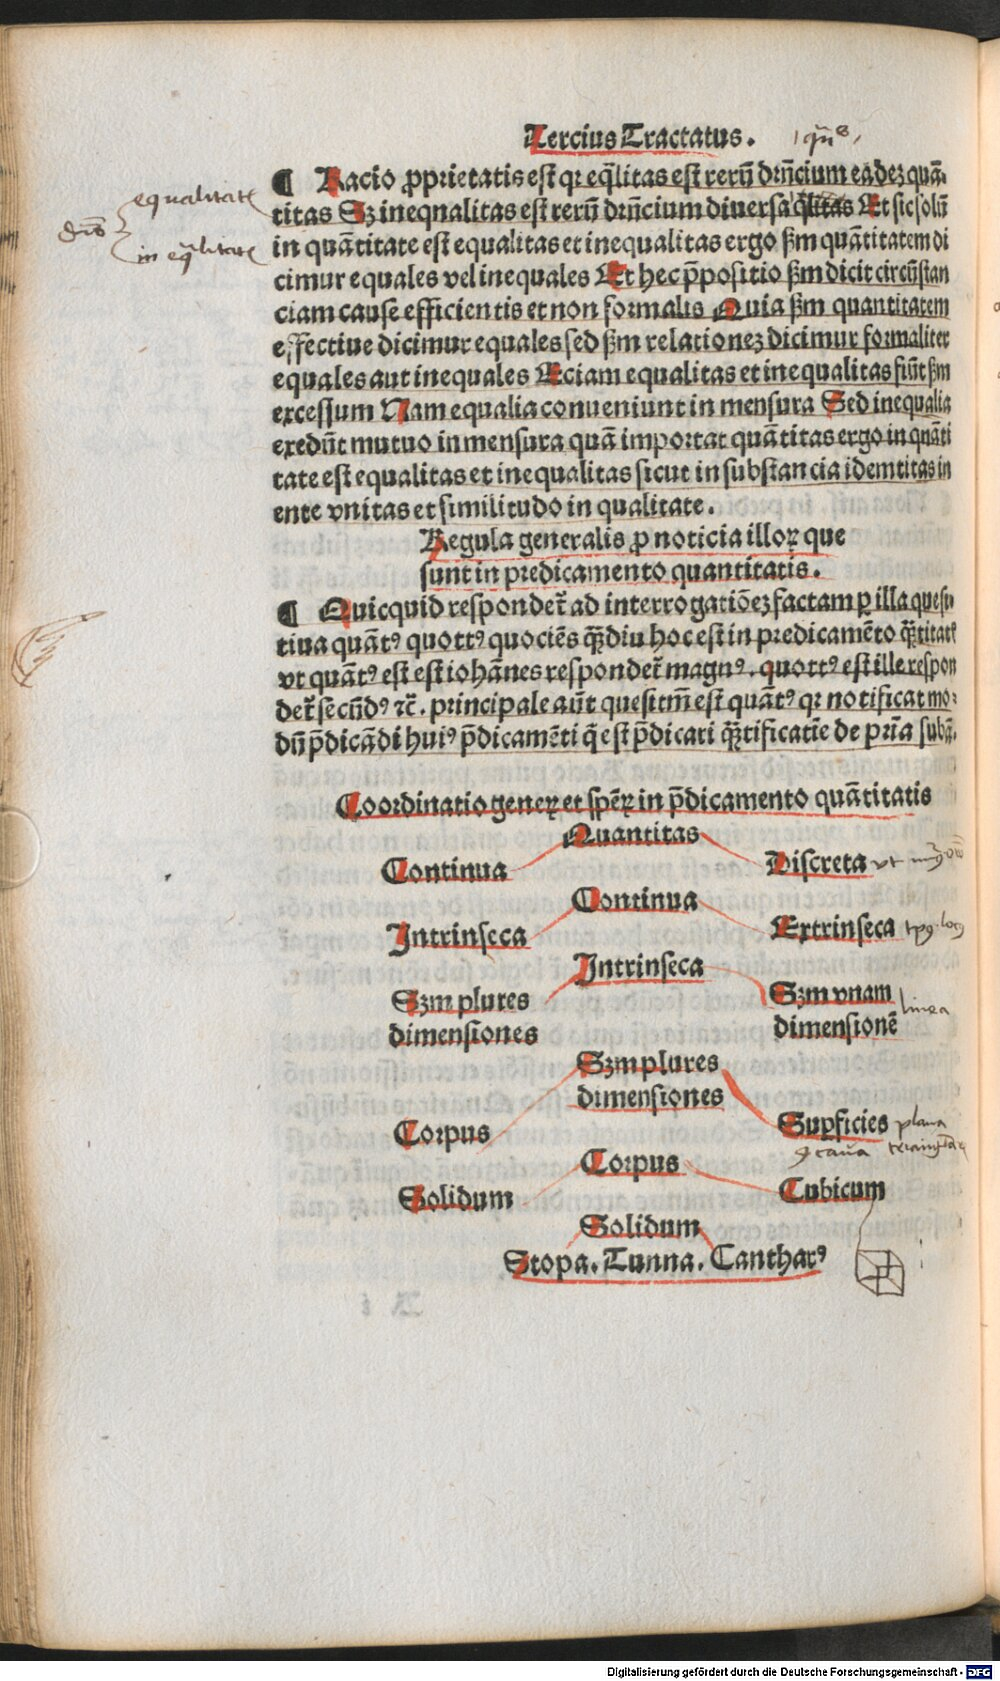 Tercius Tractatus.
¶ Racio ꝓprietatis est qꝛ eq̄litas est rerū dr̄ncium eadeꝫ quā
titas Sꝫ ineqnalitas est rerū dr̄ncium diuersa q̄litas Et sic solū
in quātitate est equalitas et inequalitas ergo ẜm quātitatem di
cimur equales vel inequales Et hec ꝓpositio ẜm dicit circūstan
ciam cause efficientis et non formalis Quia ẜm quantitatem
effectiue dicimur equales sed ẜm relationeꝫ dicimur formaliter
equales aut inequales Eciam equalitas et inequalitas fiūt ẜm
excessum Nam equalia conueniunt in mensura Sed inequalia
exedūt mutuo in mensura quā importat quātitas ergo in quāti
tate est equalitas et inequalitas sicut in substancia idemtitas in
ente vnitas et similitudo in qualitate.
Regula generalis ꝓ noticia illoꝝ que
sunt in predicamento quantitatis.
¶ Quicquid respondet̄ ad interrogatiōeꝫ factam ꝑ illa quesi
tiua quātꝰ quottꝰ quociēs q̄ꝫdiu hoc est in predicamēto q̄ꝫtitatꝭ
vt quātꝰ est est iohānes respondet̄ magnꝰ. quottꝰ est ille respon
det̄ secūdꝰ ⁊c̄. principale aūt quesitm̄ est quātꝰ qꝛ notificat mo
dū p̄dicādi huiꝰ p̄dicamēti q̄ est p̄dicari q̄ꝫtificatīe de pr̄ia subā.
Coordinatio geneꝝ et spēꝝ in p̄dicamento quātitatis
Quantitas
Continua Discreta vt
Continua
Intrinseca Extrinseca
Intrinseca
Sꝫm plures Sꝫm vnam linea
dimensiones dimensionē
Sꝫm plures
dimensiones
Corpus Suꝑficies plana
Corpus
Solidum Cubicum
Solidum
Stopa. Tunna. Cantharꝰ
equalitate
in eq̄litate
Digitalisierung gefördert durch die Deutsche Forschungsgemeinschaft - DFG